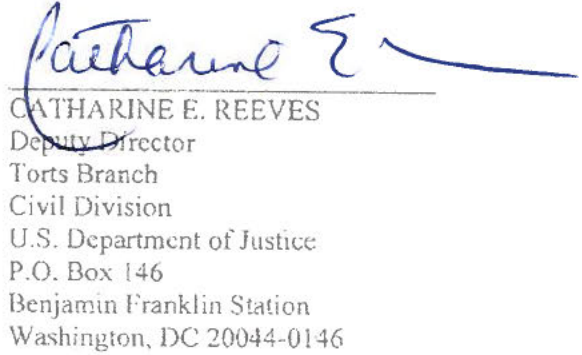 Catharine E
CATHARINE E. REEVES
Deputy Director
Torts Branch
Civil Division
U.S. Department of Justice
P.O. Box 146
Benjamin Franklin Station
Washington, DC 20044-0146